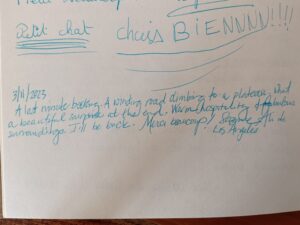 Petit chat choisis BIENNNN!!!!
3/11/2023
A last minute booking. A winding road climbing to a plateau, what
a beautiful surprise at the end. Warm hospitality & fabulous
surroundings. I'll be back. Merci beaucoup!
Los Angeles